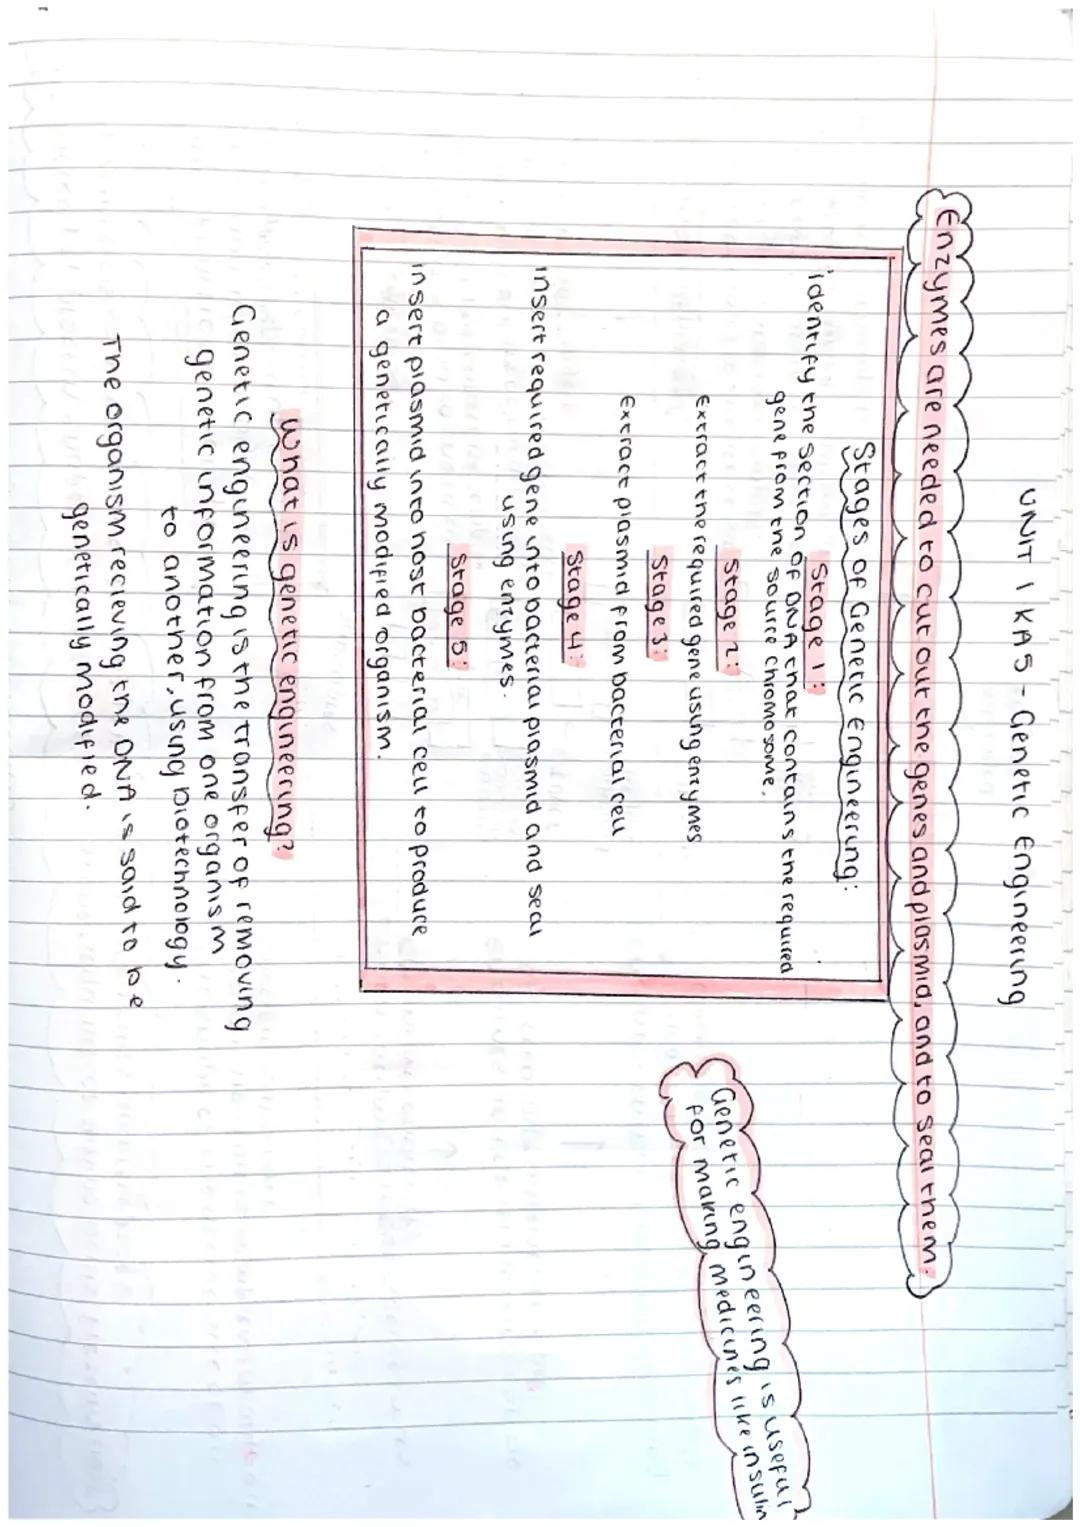 UNIT 1 KA5 - Genetic Engineering
Enzymes are needed to cut out the genes and plasmid, and to seal them.
Stages of Genetic Engineering:
Stage 1:
identify the section of DNA that contains the required
gene from the source chromosome.
Stage 2:
Extract the required gene using enzymes
Stage 3:
Extract plasmid from bacterial cell
Stage 4:
insert required gene into bacterial plasmid and seal
using enzymes.
Stage 5:
insert plasmid into host bacterial cell to produce
a genetically modified organism.
Genetic engineering is useful
for making medicines like insulin
What is genetic engineering?
Genetic engineering is the transfer of removing
genetic information from one organism
to another, using biotechnology.
The organism recieving the DNA is said to be
genetically modified.